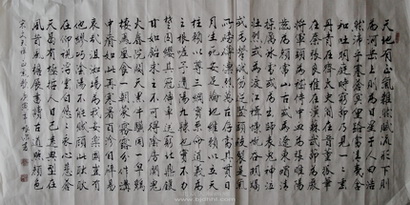 天地有正氣雜然賦流形下則
為河嶽上則為日星於人曰浩
然沛乎塞蒼冥皇路當清夷含
和吐明庭時窮節乃見一一垂
丹青在齊太史簡在晉董狐筆
在秦張良椎在漢蘇武節為嚴
將軍頭為嵇侍中血為張睢陽
齒為顏常山舌或為遼東帽清
操厲冰雪或為出師表鬼神泣
壯烈或為渡江楫慷慨吞胡羯
或為擊賊笏逆豎頭破裂是氣
所磅礴凜烈萬古存當其貫日
月生死安足論地維賴以立天
柱賴以尊三綱實係命道義為
之根嗟予遘陽九隸也實不力
楚囚纓其冠傳車送窮北鼎鑊
甘如飴求之不可得陰房闃鬼
火春院閟天黑牛驥同一皂雞
棲鳳凰食一朝蒙霧露分作溝
中瘠如此再寒暑百沴自辟易
哀哉沮洳場為我安樂國豈有
他繆巧陰陽不能賊顧此耿耿
在仰視浮雲白悠悠我心悲蒼
天曷有極哲人日已遠典刑在夙昔
風簷展書讀古道照顏色
宋文天祥正氣歌